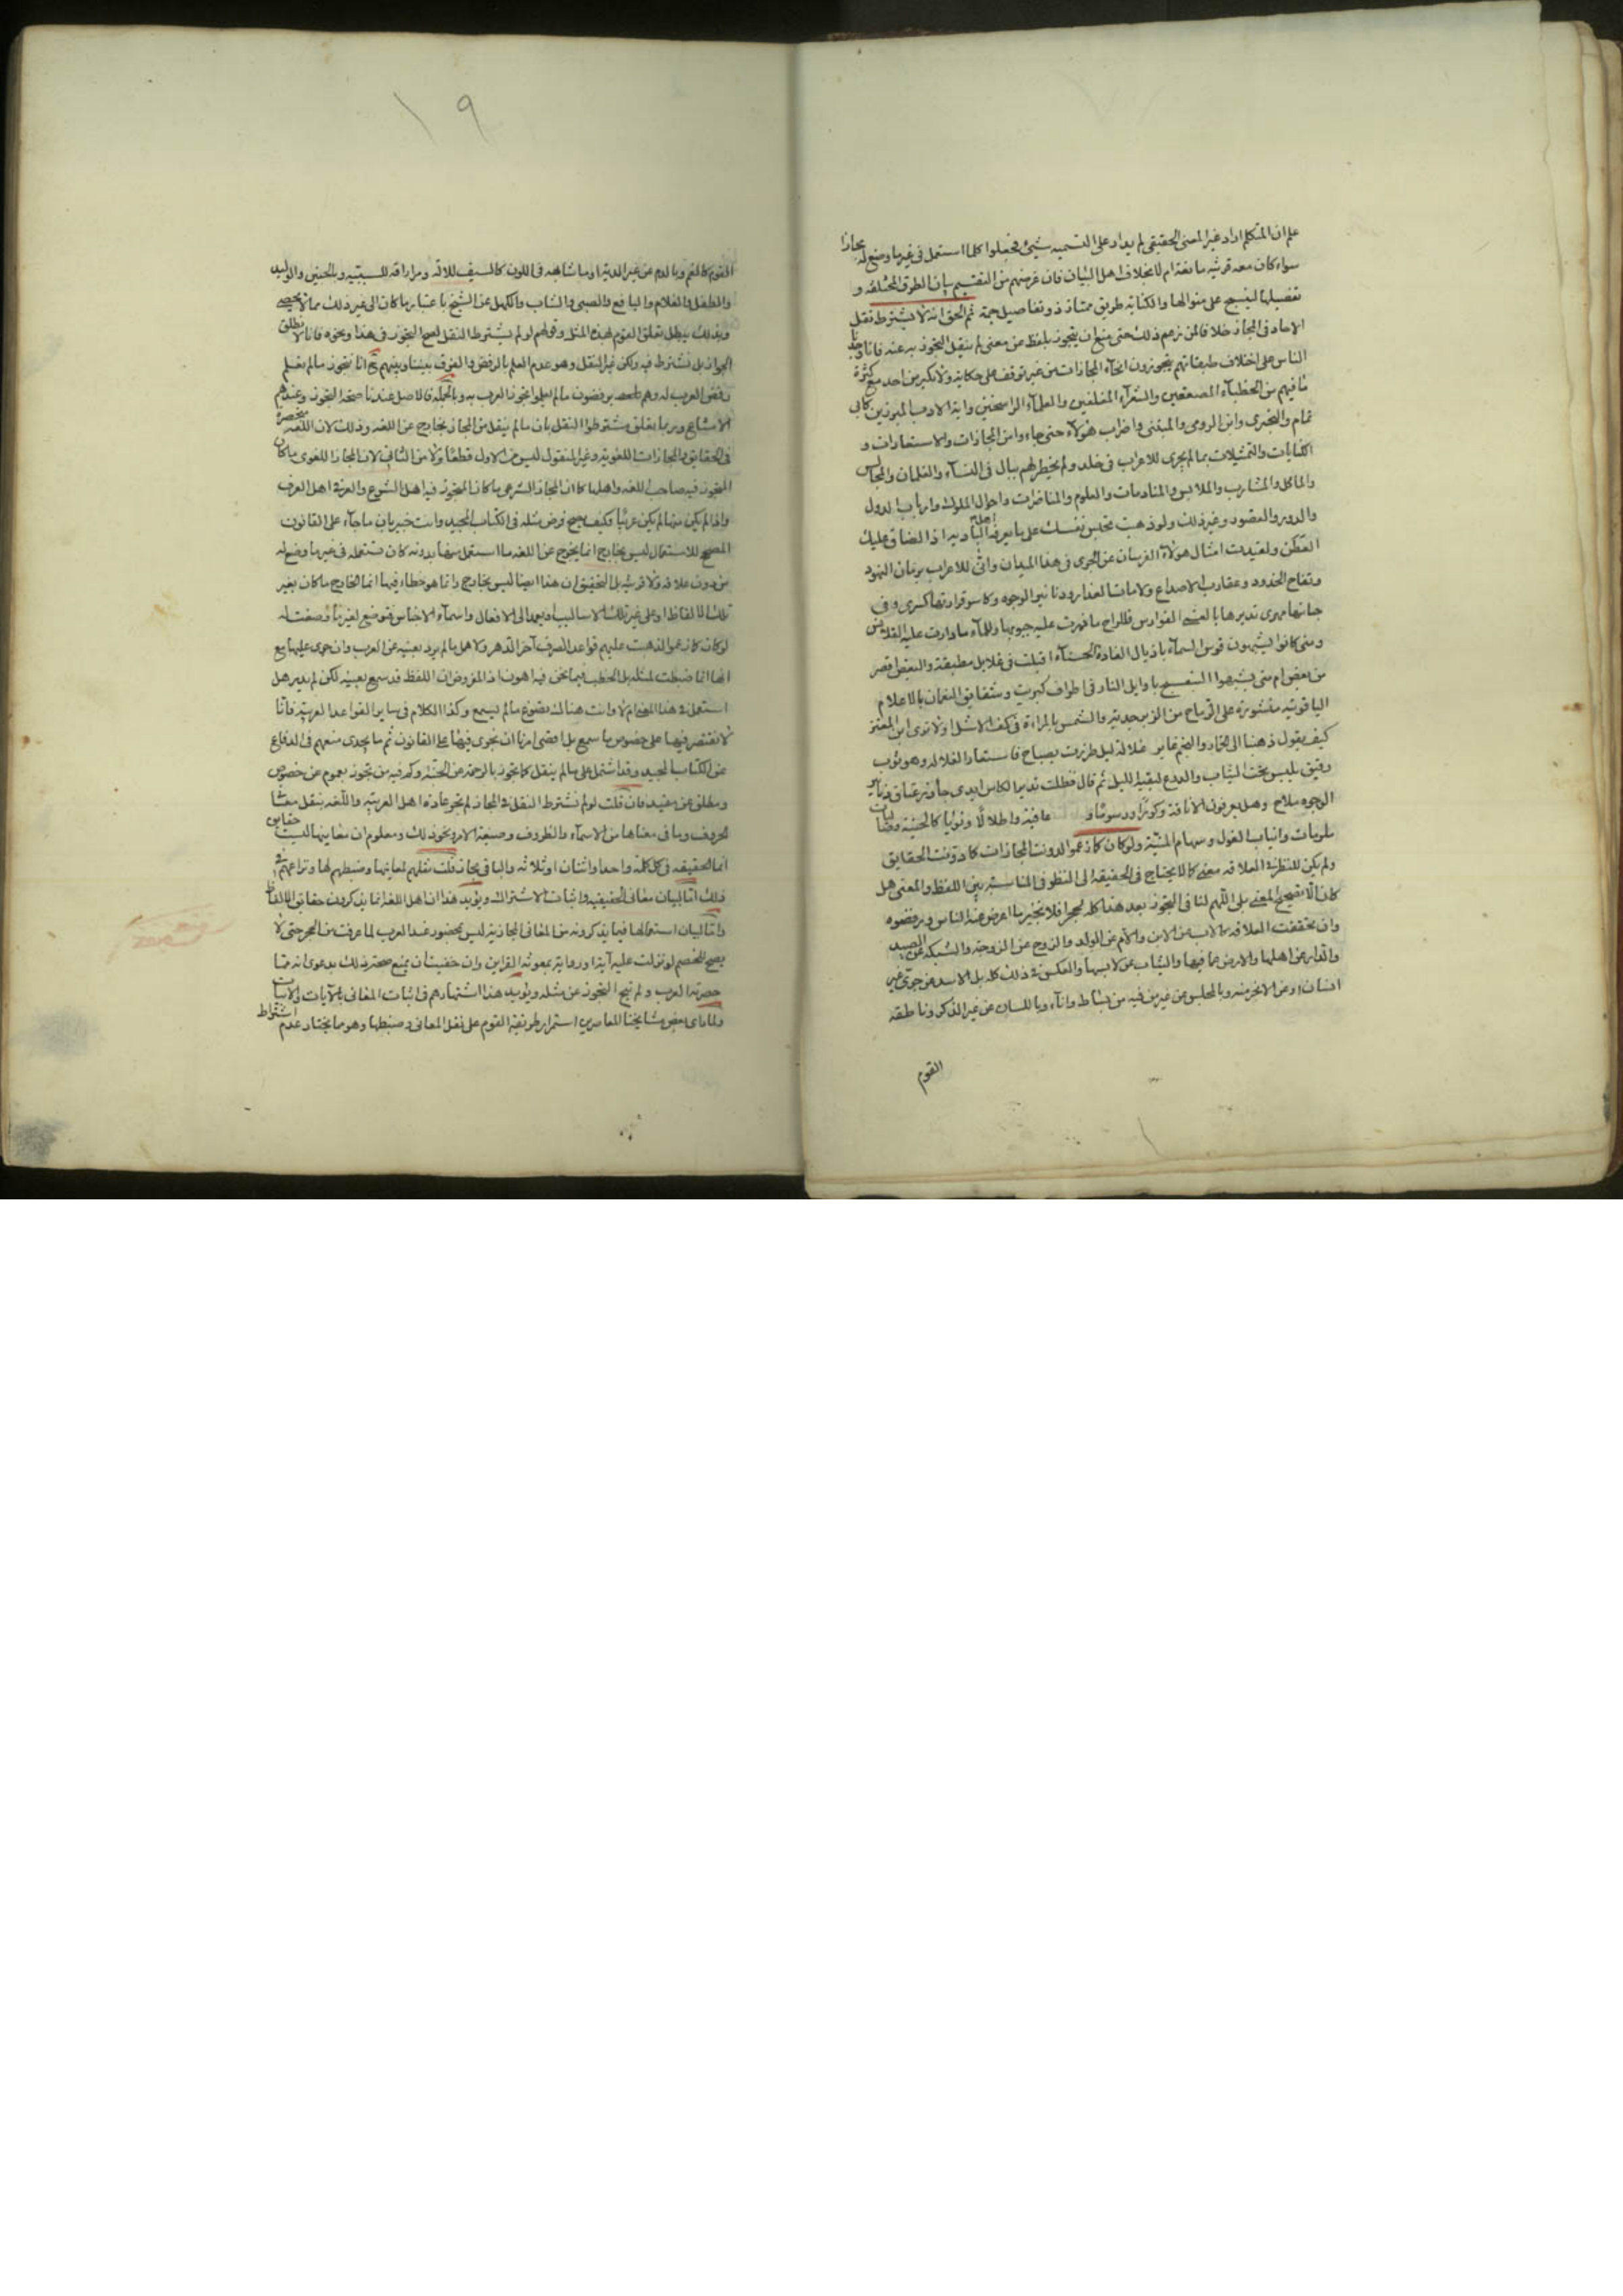 علم ان المتكلم اراد غير المعنى الحقيقى لم يدار على التسميه شيئ فجعلوا كلما استعمل فى غير ما وضع له مجازا
سواء كان معه قرينه مانعة ام لا بخلاف اهل البيان فان غرضهم من التقسيم بيان الطرق المختلفه و
تفصيلها لينسج على منوالها والكنايه طريق ممتاز ذو تفاصيل جمة ثم الحق انه لا يشترط نقل
الاحاد فى المجاز خلافا لمن زعم ذلك حتى منع ان يتجوز بلفظ عن معنى لم ينقل التجوز به عنه فانا وجدنا
الناس على اختلاف طبقاتهم يتجوزون انحآء المجازات من غير توقف على حكاية ولا نكير من احد مع كثرة
ما فيهم من الخطبآء المصقعين والشعرآء المفلقين والعلمآء الراسخين وايمة الادب المبرزين كابى
تمام والبحترى وابن الرومى والمتنبى واضراب هؤلآء حتى جاءوا من المجازات والاستعارات و
الكنايات والتمثيلات بما لم يجرى للاعراب فى خلد ولم يخطر لهم ببال فى النسآء والغلمان والمجالس
والماكل والمشارب والملابس والمنادمات والعلوم والمناظرات واحوال الملوك وارباب الدول
والدور والقصور وغير ذلك ولو ذهبت تحبس نفسك على ما يعرفه اهل البادية اذا لضاق عليك
العطن ولعتبت امثال هؤلآء الفرسان عن الجرى فى هذا الميدان وانى للاعراب برمان النهود
وتفاح الخدود وعقارب الاصداغ ولامات العذار ودنانير الوجوه وكاس قرارتها كسرى وفى
جنباتها مهرى تدريها بالقسى الفوارس فللراح ما زرت عليه جيوبها وللمآء ما دارت عليه القلانس
ومتى كانوا يشبهون قوس السمآء باذيال الغادة الحسنآء اقبلت فى غلايل مصبغة والبعض اقصر
من بعض ام متى يشبهوا البنفسج باوايل النار فى اطراف كبريت وشقايق النعمان بالاعلام
الياقوتيه منشورة على الرماح من الزبرجديه والشمس بالمراءة فى كف الاشل اولا ترى ابن المعتز
كيف يقول ذهنا الى الخمار والنجم غاير غلالة ليل طرزت بصباح فاستعار الغلاله وهو ثوب
رقيق يلبس تحت الثياب والدرع لبقية الليل ثم قال فظلت تدير الكاس ايدى جآذر عتاق دنانير
الوجوه ملاح وهل يعرفون الا ناقة وكورا ودرسوما و عافية واطلالا ونوايا كالحنية وقضبان
ملويات وانياب الغول وسهام المنيّة ولو كان كما زعموا لدونت المجازات كما دونت الحقايق
ولم يكن للنظر فى العلاقه معنى كما لا يحتاج فى الحقيقه الى النظر فى المناسبة بين اللفظ والمعنى هل
كان الا تصحيح المعنى بلى اللهم لنا فى التجوز بعد هذا كله لحجرا فلا نختير ما اعرض عنه الناس ورفضوه
وان تحققت العلاقه كالاب عن الابن والام عن الولد والزوج عن الزوجه والشبكه عن الصيد
والدار عن اهلها والارض عما فيها والثياب عن لابسها والعكس فى ذلك كله بل الاسد عن جرى غير
انسان او عن الابخر منه وبالمجلس عن غير من فيه من بساط وانآء وباللسان عن غير الذكر وناطقه
القوم
١٩
القوم كالفم وبالدم عن غير الدية او ما شابهه فى اللون كالسيف للاله ومراراقه للسببيه وبالجنين والوليد
والطفل والغلام واليافع والصبى والشاب والكهل عن الشيخ باعتبار ما كان الى غير ذلك مما لا يحصى
وبذلك يبطل تعلق القوم لهذه المثل وقولهم لو لم يشترط النقل لصح التجوز فى هذا ونحوه فانا لا نطلق
الجواز بل نشترط فيه ولكن غير النقل وهو عدم العلم بالرفض والفرق بيننا وبينهم ح انا نتجوز ما لم نعلم
رفض العرب له وهم يرفضون ما لم يعلموا تجوز العرب به وبالجمله فالاصل عندنا صحة التجوز وعندهم
الامتناع وربما تعلق مشترطوا النقل بان ما لم ينقل من المجاز خارج عن اللغه وذلك لان اللغه منحصرة
فى الحقايق والمجازات اللغويه وغير المنقول ليس من الاول قطعًا ولا من الثانى لان المجاز اللغوى ما كان
المتجوز فيه صاحب اللغه واهلها كما ان المجاز الشرعى ما كان المتجوز فيه اهل الشرع والعرفى اهل العرف
واذا لم يكن منها لم يكن عربيًا وكيف يصح فرض مثله فى الكتاب المجيد وانت خبير بان ما جآء على القانون
المصحح للاستعمال ليس بخارج انما يخرج عن اللغه ما استعمل منها بدونه كان تستعمله فى غير ما وضع له
من دون علاقه ولا قرينه بل التحقيق ان هذا ايضا ليس بخارج وانما هو خطاء فيها انما الخارج ما كان بغير
تلك الالفاظ او على غير تلك الاساليب او يعمد الى الافعال واسمآء الاجناس فتوضع لغير ما وضعت له
لو كان كما زعموا لذهبت عليهم قواعد الصرف آخر الدهر ولاهل ما لم يرد بعينه عن العرب وان جرى عليها مع
انها انما ضبطت لمثله بل الخطب فيما نحن فيه اهون اذ المفروض ان اللفظ قد سمع بعينه لكن لم يدر هل
استعمل فى هذا المعنى ام لا وانت هنالك تصوغ ما لم يسمع وكذا الكلام فى ساير القواعد العربيه فانا
لا نقتصر فيها على خصوص ما سمع بل اقصى امرنا ان نجرى فيها على القانون ثم ما يجدى منعهم فى الدفاع
عن الكتاب المجيد وقد اشتمل على ما لم ينقل كما تجوز بالرحمة عن الجنة وكم فيه من تجوز بعموم عن خصوص
ومطلق عن مقيد فان قلت لو لم نشترط النقل فى المجاز لم تجر عادة اهل العربيه واللغه بنقل معانى
الحروف وما فى معناها من الاسمآء والظروف وصيغة الامر ونحو ذلك ومعلوم ان معانيها ليست حقايق
انما الحقيقه فى كل كلمة واحد او اثنان او ثلاثه والباقى مجاز قلت نقلهم لمعانيها وضبطهم لها ونزاعهم فى
ذلك اما لبيان معانى الحقيقيه واثبات الاشتراك ويؤيد هذا ان اهل اللغه انما يذكرون حقايق الالفاظ
واما لبيان استعمالها فيما يذكرونه من المعانى المجازية ليس بمحضور عند العرب لما عرفت من الحجر حتى لا
يصح للخصم لو نزلت عليه آية او رواية بمعونة القراين وان خفيت ان يمنع صحة ذلك بدعوى انه مما
حضرته العرب ولم تبح التجوز عن مثله ويؤيد هذا اشتهارهم فى اثبات المعانى بالآيات والابيات
ولما راى بعض مشايخنا المعاصرين استمرار طريقة القوم على نقل المعانى وضبطها وهو ما يختار عدم اشتراط